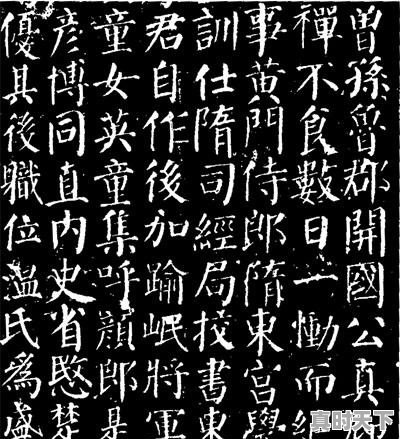 曾孫魯郡開國公真
禪不食數日一慟而
事黃門侍郎隋東宮學
訓仕隋司經局挍書東
君自作後加踰岷將軍
童女英童集呼顏郎是
彦博同直內史省愍楚
優其後職位溫氏為盛
真时天下